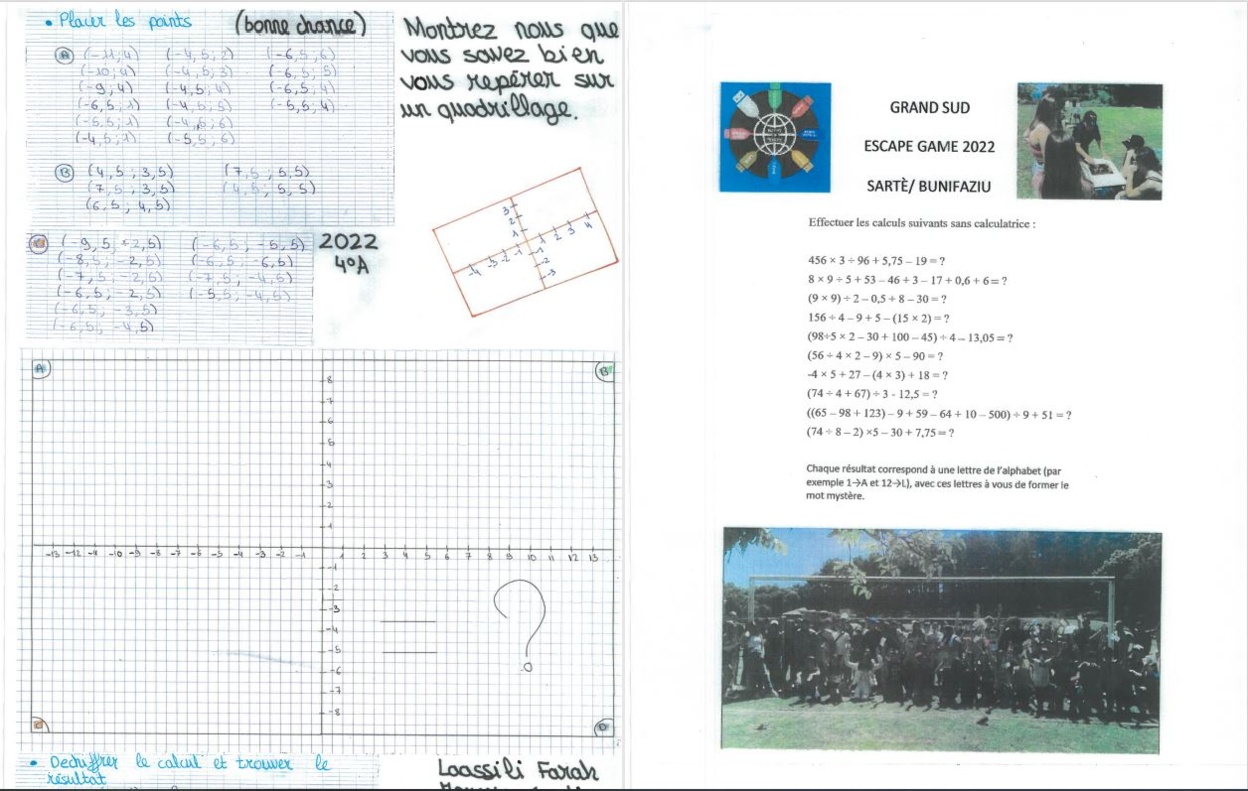 • Placer les points (bonne chance)
Montrez nous que
vous savez bien
vous repérer sur
un quadrillage.
A (-11;4) (-4,5;2) (-6,5;6)
(-10;4) (-4,5;3) (-6,5;5)
(-9;4) (-4,5;4) (-6,5;4)
(-6,5;1) (-4,5;5) (-5,5;4)
(-5,5;1) (-4,5;6)
(-4,5;1) (-5,5;6)
B (4,5;3,5) (7,5;5,5)
(7,5;3,5) (4,5;5,5)
(6,5;4,5)
C (-9,5;-2,5) (-6,5;-5,5)
(-8,5;-2,5) (-6,5;-6,5)
(-7,5;-2,5) (-7,5;-4,5)
(-6,5;-2,5) (-5,5;-4,5)
(-6,5;-3,5)
(-6,5;-4,5)
2022
4°A
3
2
1
-4 -3 -2 -1 1 2 3 4
-1
-2
-3
A B
8
7
6
5
4
3
2
1
-13 -12 -11 -10 -9 -8 -7 -6 -5 -4 -3 -2 -1 1 2 3 4 5 6 7 8 9 10 11 12 13
-1
-2
-3
-4
-5
-6
-7
-8
?
C D
• Dechiffrer le calcul et trouver le
résultat
Loassili Farah
GRAND SUD
ESCAPE GAME 2022
SARTÈ/ BUNIFAZIU
Effectuer les calculs suivants sans calculatrice :
456 × 3 ÷ 96 + 5,75 – 19 = ?
8 × 9 ÷ 5 + 53 – 46 + 3 – 17 + 0,6 + 6 = ?
(9 × 9) ÷ 2 – 0,5 + 8 – 30 = ?
156 ÷ 4 – 9 + 5 – (15 × 2) = ?
(98÷5 × 2 – 30 + 100 – 45) ÷ 4 – 13,05 = ?
(56 ÷ 4 × 2 – 9) × 5 – 90 = ?
-4 × 5 + 27 – (4 × 3) + 18 = ?
(74 ÷ 4 + 67) ÷ 3 - 12,5 = ?
((65 – 98 + 123) – 9 + 59 – 64 + 10 – 500) ÷ 9 + 51 = ?
(74 ÷ 8 – 2) ×5 – 30 + 7,75 = ?
Chaque résultat correspond à une lettre de l'alphabet (par
exemple 1→A et 12→L), avec ces lettres à vous de former le
mot mystère.